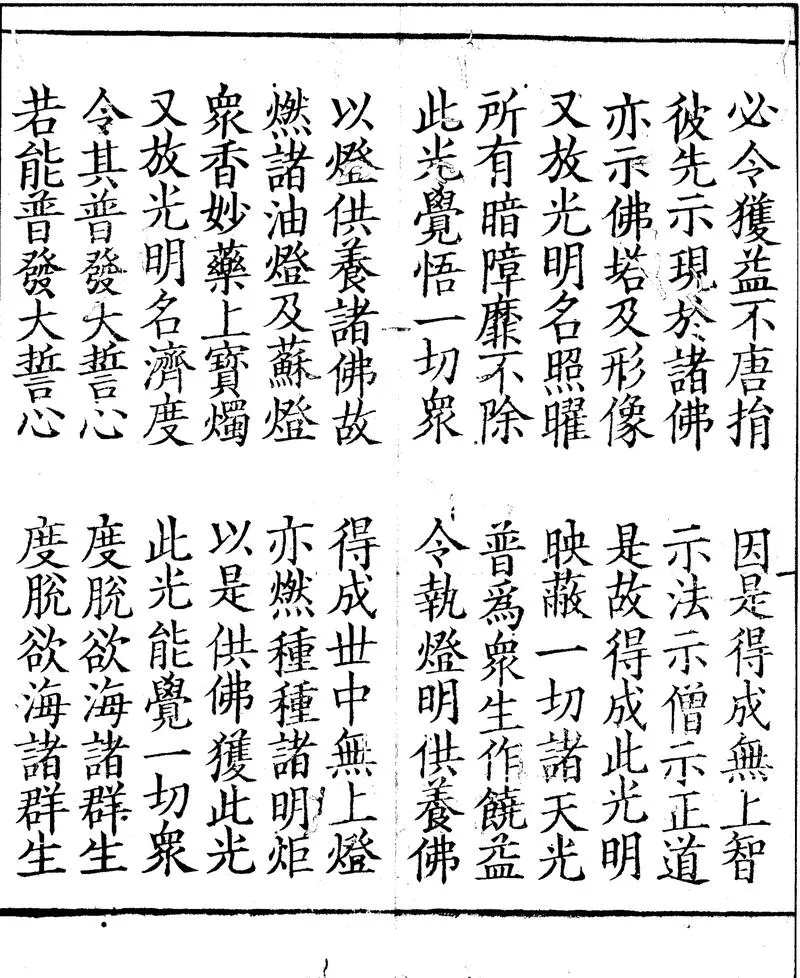 必令獲益不唐捐　因是得成無上智
彼先示現於諸佛　示法示僧示正道
亦示佛塔及形像　是故得成此光明
又放光明名照曜　映蔽一切諸天光
所有暗障靡不除　普為眾生作饒益
此光覺悟一切眾　令執燈明供養佛
以燈供養諸佛故　得成世中無上燈
燃諸油燈及蘇燈　亦燃種種諸明炬
眾香妙藥上寶燭　以是供佛獲此光
又放光明名濟度　此光能覺一切眾
令其普發大誓心　度脫欲海諸群生
若能普發大誓心　度脫欲海諸群生